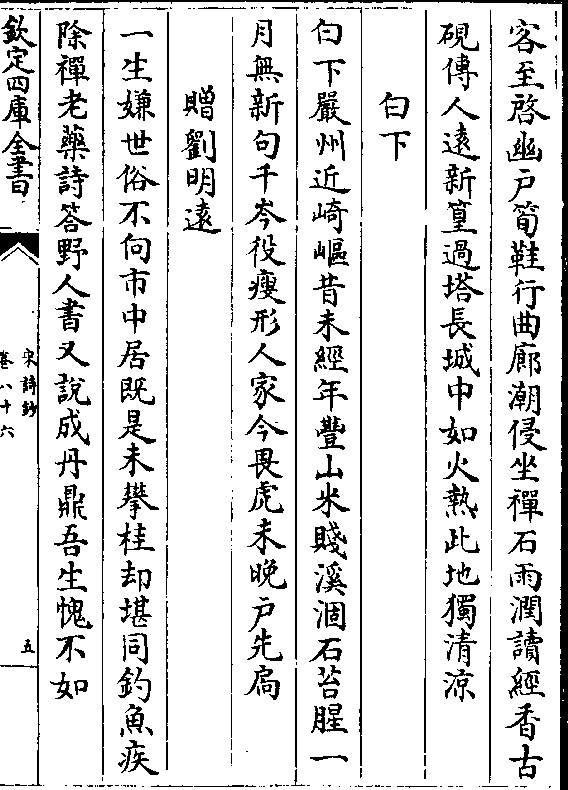 客至啓幽户筍鞋行曲廊潮侵坐禪石雨潤讀經香古
硯傳人遠新篁過塔長城中如火熱此地獨清涼
白下
白下嚴州近崎嶇昔未經年豐山米賤溪涸石苔腥一
月無新句千岑役瘦形人家今畏虎未晚户先扃
贈劉明遠
一生嫌世俗不向市中居既是未攀桂却堪同釣魚疾
除禪老藥詩答野人書又說成丹鼎吾生愧不如
欽定四庫全書
宋詩鈔
卷八十六
五